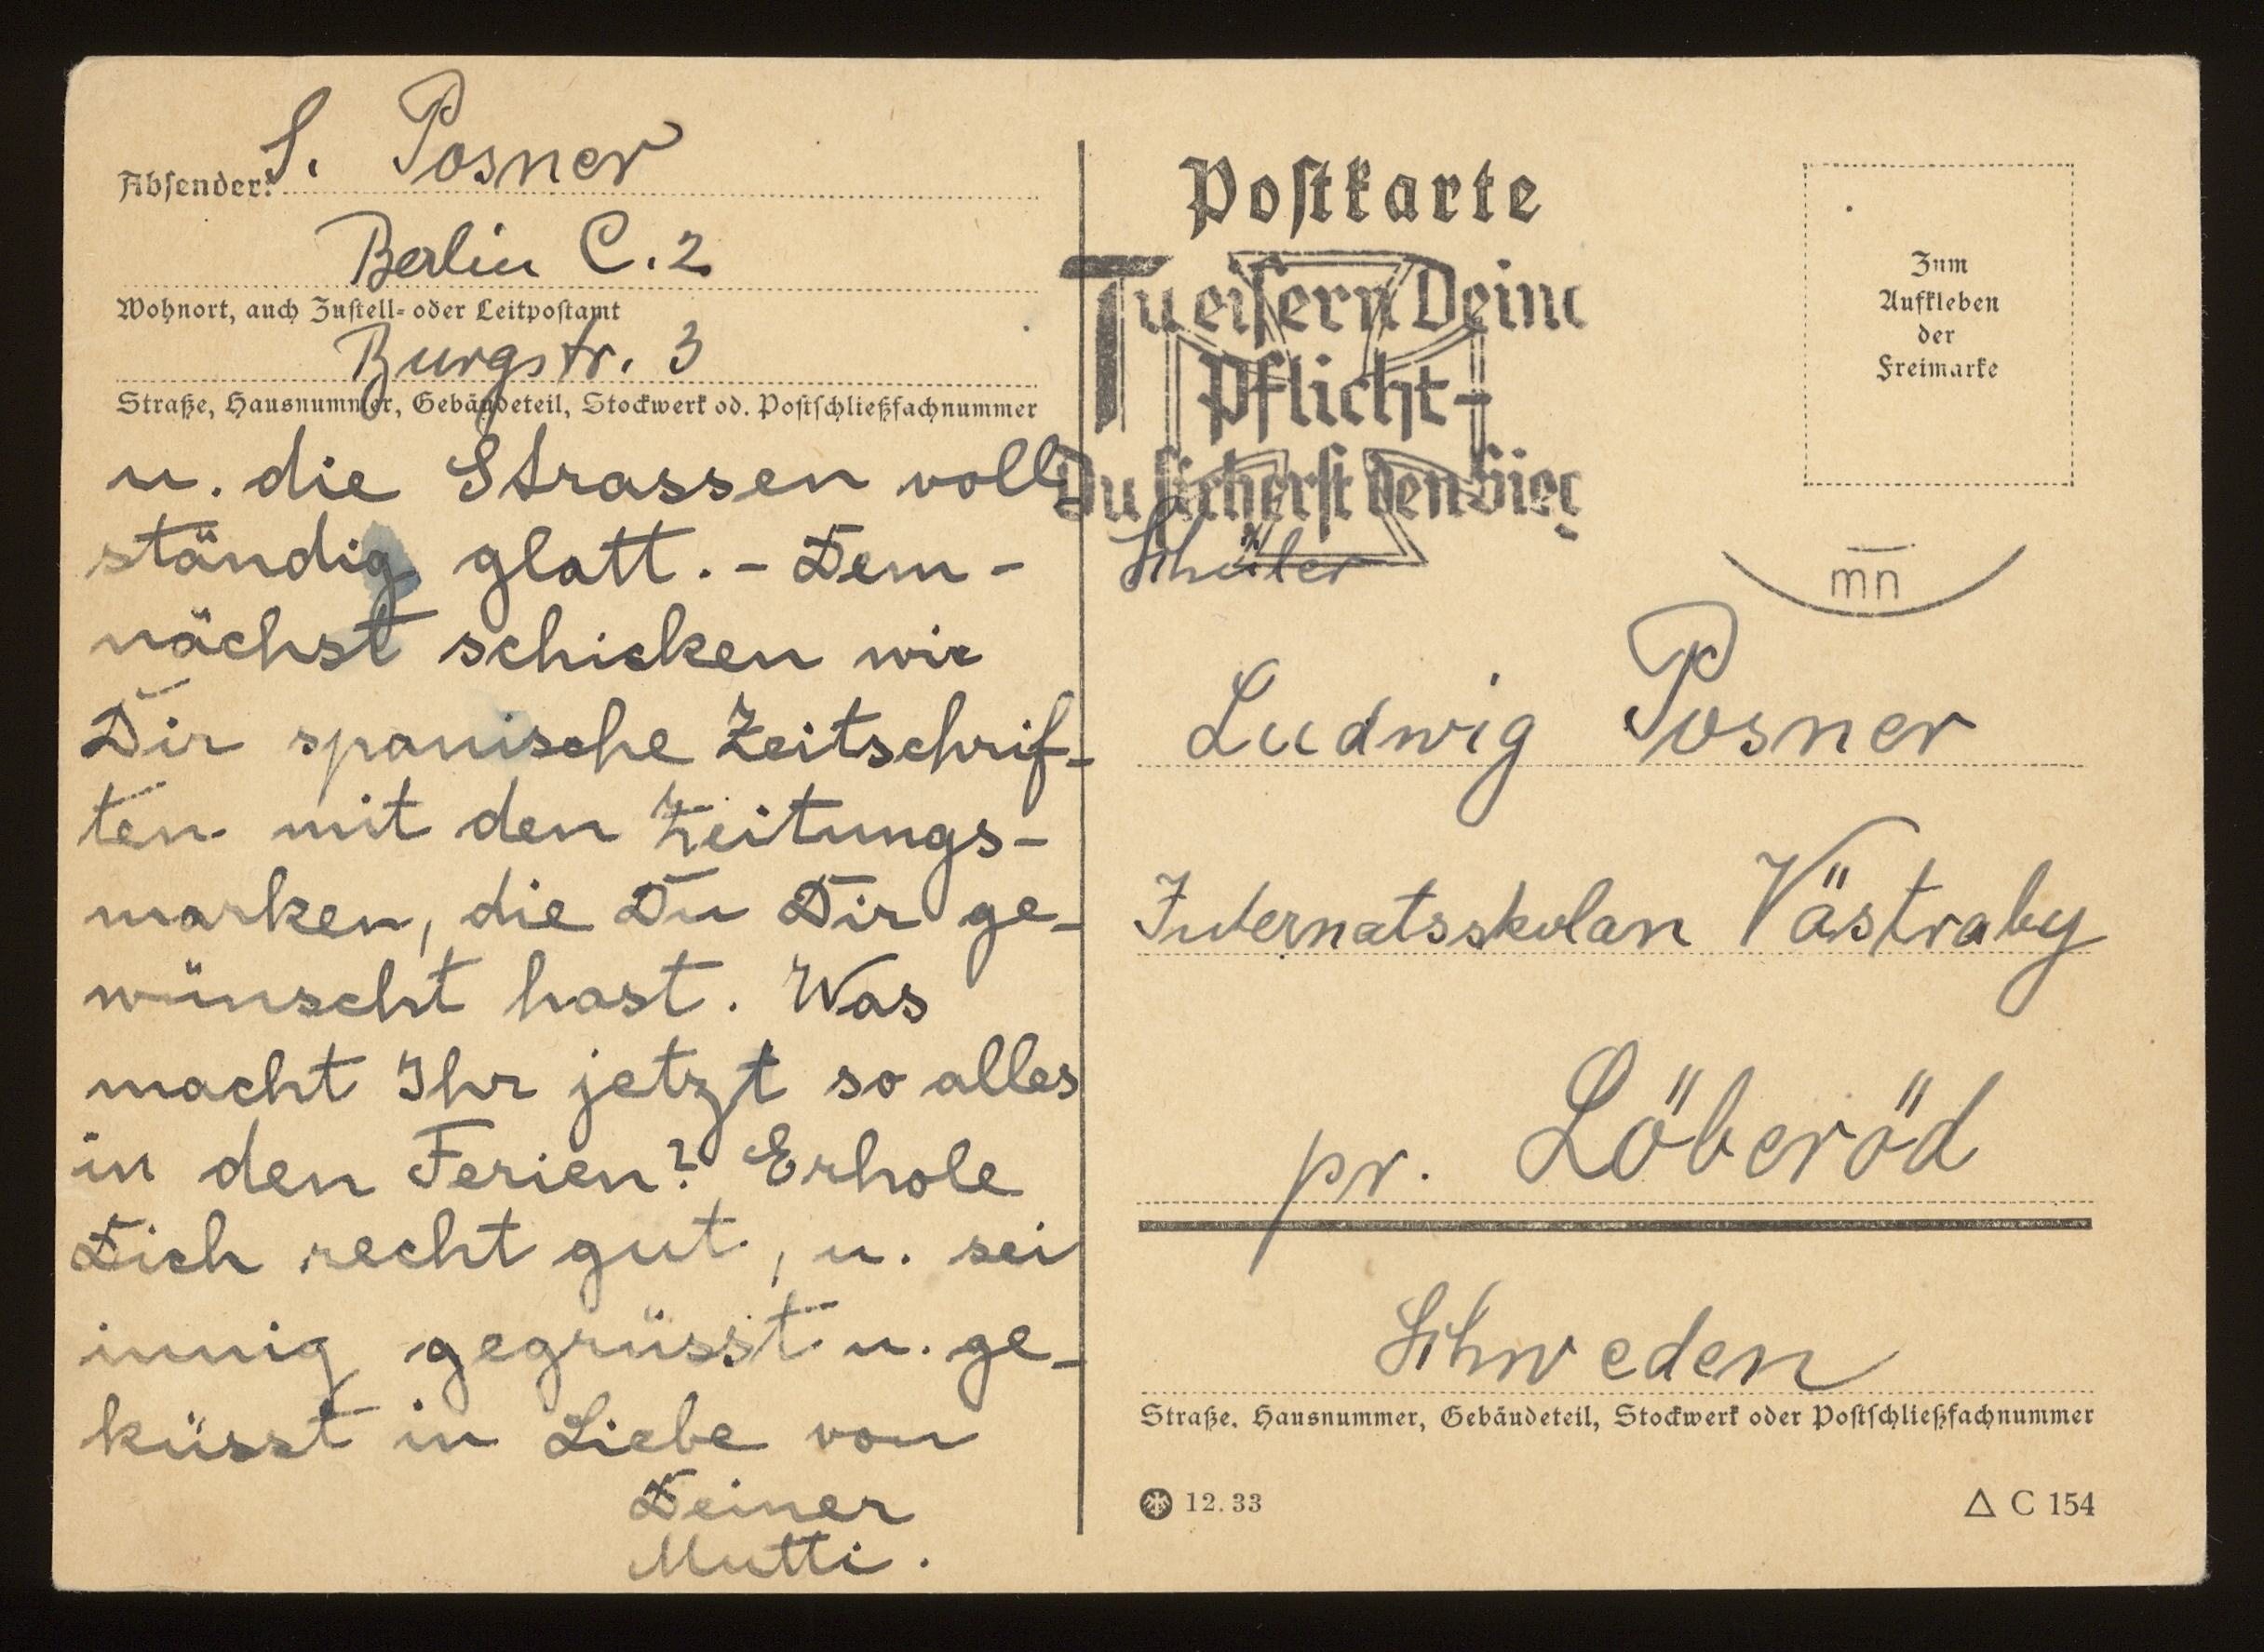 Absender: S. Posner
Berlin C. 2
Wohnort, auch Zustell- oder Leitpostamt
Burgstr. 3
Straße, Hausnummer, Gebäudeteil, Stockwerk od. Postschließfachnummer
u. die Strassen voll
ständig glatt. - Dem-
nächst schicken wir
Dir spanische Zeitschrif-
ten mit den Zeitungs-
marken, die Du Dir ge-
wünscht hast. Was
macht Ihr jetzt so alles
in den Ferien? Erhole
Dich recht gut, u. sei
innig gegrüsst u. ge-
küsst in Liebe von
Deiner
Mutti.
Postkarte
Tu eisern Deine
Pflicht-
Du sicherst den Sieg
Zum
Aufkleben
der
Freimarke
mn
Schüler
Ludwig Posner
Internatsskolan Västraby
pr. Löberöd
Schweden
Straße, Hausnummer, Gebäudeteil, Stockwerk oder Postschließfachnummer
12. 33
△ C 154